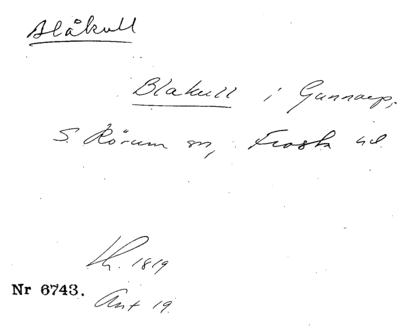 Blåkull
Blakull i Gunnarp,
S. Rörum sn, Frosta hd.
Lk. 1819
Nr 6743.
Ant 19.